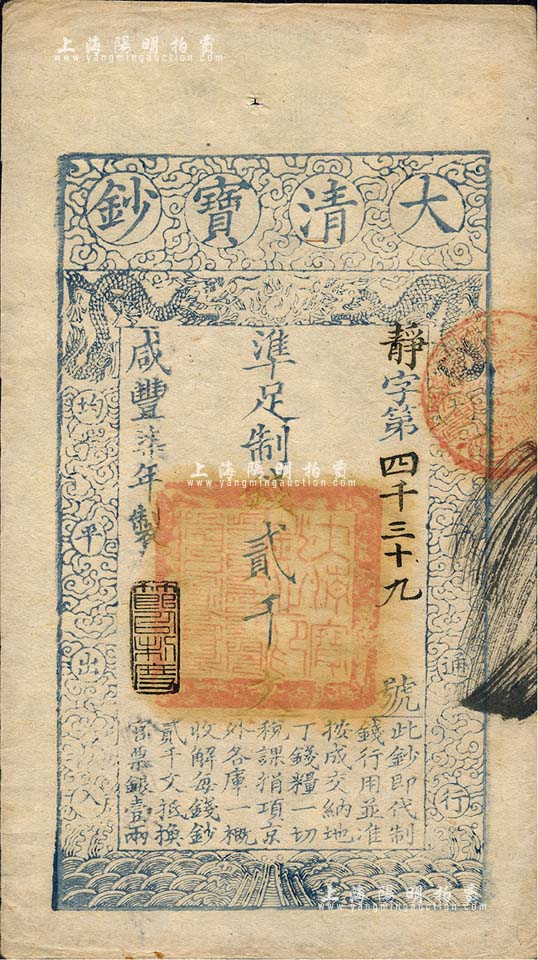 上海陽明拍賣
www.yangmingauction.com
大清寶鈔
靜字第四千三十九號
準足制錢貳千文
咸豐柒年製
均平出入
通行
此鈔即代制
錢行用並准
按成交納地
丁錢糧一切
稅課捐項京
外各庫一概
收解每錢鈔
貳千文抵換
官票銀壹兩
上海陽明拍賣
www.yangmingauction.com
上海陽明拍賣
www.yangmingauction.com